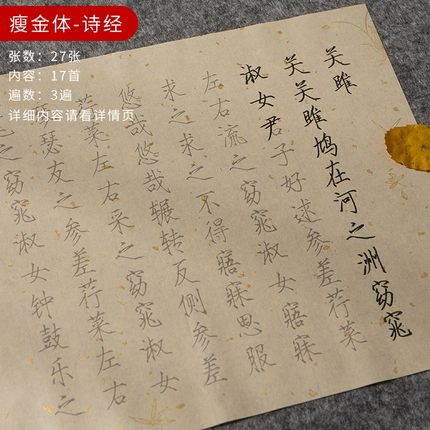 瘦金体-诗经
张数：27张
内容：17首
遍数：3遍
详细内容请看详情页
关雎
关关雎鸠在河之洲窈窕
淑女君子好逑参差荇菜
左右流之窈窕淑女寤寐
求之求之不得寤寐思服
悠哉悠哉辗转反侧参差
荇菜左右采之窈窕淑女
瑟友之参差荇菜左右
之窈窕淑女钟鼓乐之